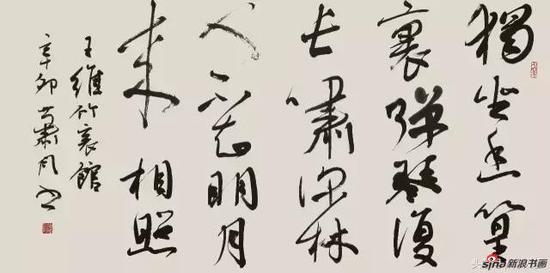 獨坐幽篁
裏彈琴復
長嘯深林
人不知明月
來相照
王維竹裏館
辛卯
sina新浪书画